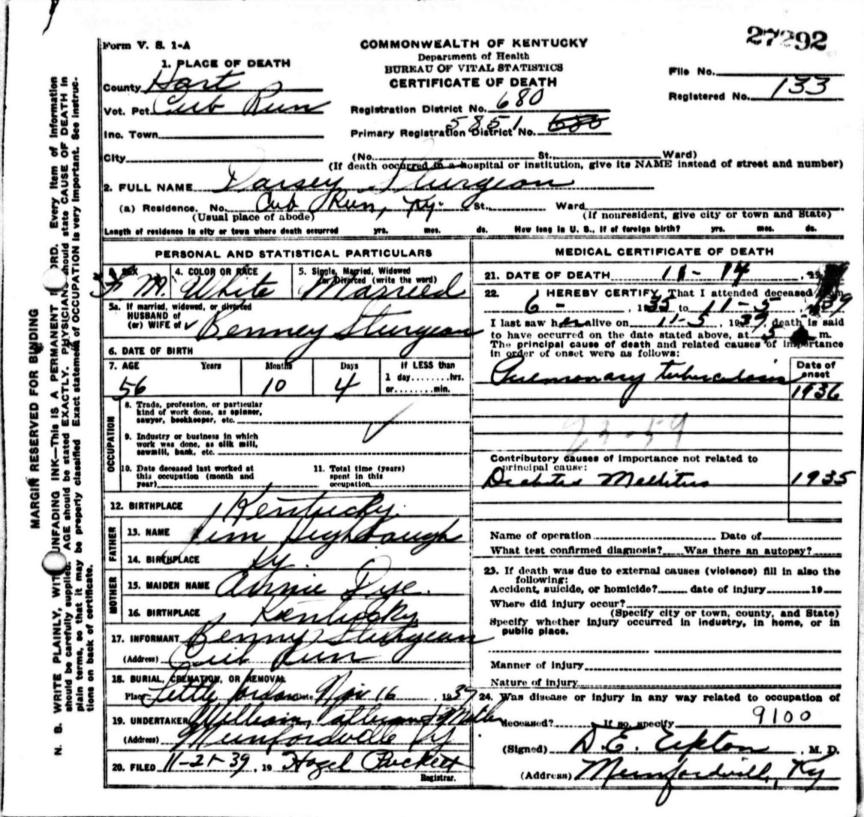 27292
Form V. S. 1-A
COMMONWEALTH OF KENTUCKY
Department of Health
BUREAU OF VITAL STATISTICS
CERTIFICATE OF DEATH
File No.
Registered No. 133
1. PLACE OF DEATH
County Hart
Vot. Pct. Cub Run
Inc. Town
City
Registration District No. 680
Primary Registration District No. 5851 680
(No. St. Ward)
(If death occurred in a hospital or institution, give its NAME instead of street and number)
2. FULL NAME Darsey Sturgeon
(a) Residence. No. Cub Run, Ky. St. Ward
(Usual place of abode) (If nonresident, give city or town and State)
Length of residence in city or town where death occurred yrs. mos. ds. How long in U. S., if of foreign birth? yrs. mos. ds.
PERSONAL AND STATISTICAL PARTICULARS
SEX 4. COLOR OR RACE 5. Single, Married, Widowed
or Divorced (write the word)
White Married
5a. If married, widowed, or divorced
HUSBAND of
(or) WIFE of Benney Sturgeon
6. DATE OF BIRTH
7. AGE Years Months Days If LESS than
1 day hrs.
or min.
56 10 4
OCCUPATION
8. Trade, profession, or particular
kind of work done, as spinner,
sawyer, bookkeeper, etc.
9. Industry or business in which
work was done, as silk mill,
sawmill, bank, etc.
10. Date deceased last worked at
this occupation (month and
year)
11. Total time (years)
spent in this
occupation
12. BIRTHPLACE Kentucky
FATHER
13. NAME Jim Highbaugh
14. BIRTHPLACE Ky.
MOTHER
15. MAIDEN NAME Annie Dye.
16. BIRTHPLACE Kentucky
17. INFORMANT Benny Sturgeon
(Address) Cub Run
18. BURIAL, CREMATION, OR REMOVAL
Place Little Date Nov 16 1939
19. UNDERTAKER
(Address) Munfordville Ky
20. FILED 11-21-39 19 Hazel Puckett
Registrar.
MEDICAL CERTIFICATE OF DEATH
21. DATE OF DEATH 11-14, 19
22. I HEREBY CERTIFY, That I attended deceased from
6- 1935 to 11-5 1939
I last saw her alive on 11-5 1939, death is said
to have occurred on the date stated above, at 5 m.
The principal cause of death and related causes of importance
in order of onset were as follows:
Date of
onset
Pulmonary tuberculosis 1936
23-59
Contributory causes of importance not related to
principal cause:
Diabetes Mellitus 1935
Name of operation Date of
What test confirmed diagnosis? Was there an autopsy?
23. If death was due to external causes (violence) fill in also the
following:
Accident, suicide, or homicide? date of injury 19
Where did injury occur?
(Specify city or town, county, and State)
Specify whether injury occurred in industry, in home, or in
public place.
Manner of injury
Nature of injury
24. Was disease or injury in any way related to occupation of
deceased? If so, specify 9100
(Signed) D. E. , M. D.
(Address) Munfordville, Ky
MARGIN RESERVED FOR BINDING
N. B. WRITE PLAINLY, WITH UNFADING INK—THIS IS A PERMANENT RECORD. Every item of information
should be carefully supplied. AGE should be stated EXACTLY. PHYSICIANS should state CAUSE OF DEATH in
plain terms, so that it may be properly classified. Exact statement of OCCUPATION is very important. See instruc-
tions on back of certificate.